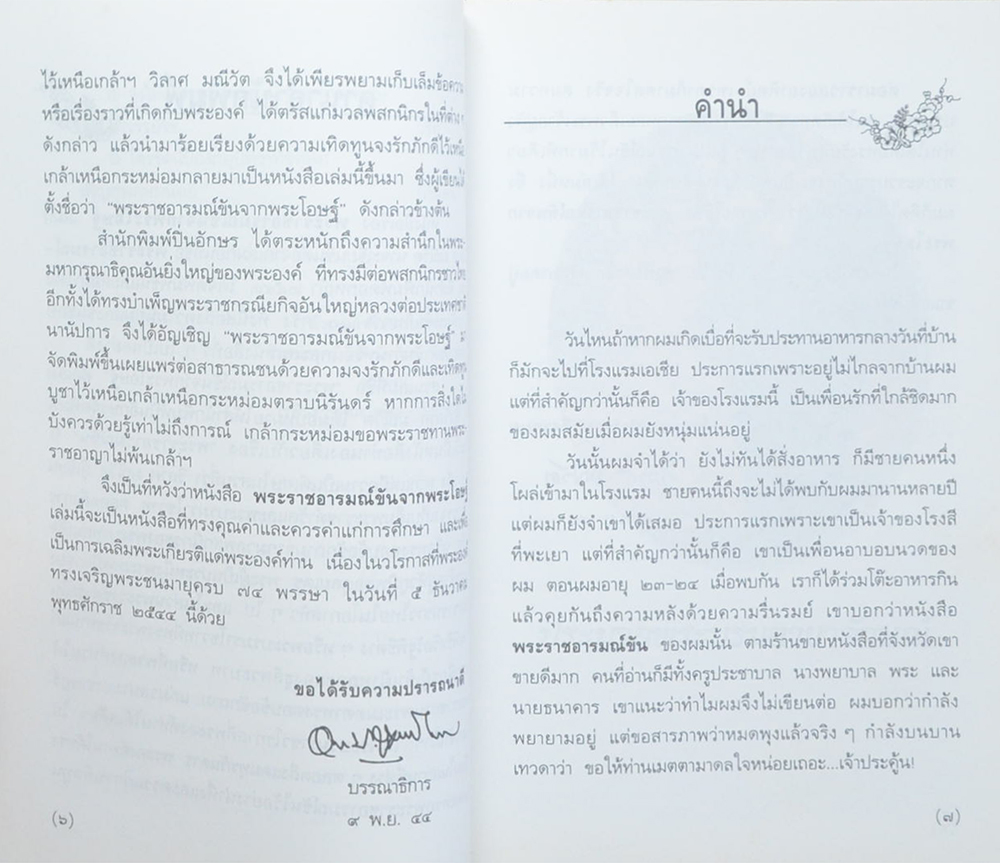 ไว้เหนือเกล้าฯ วิลาศ มณีวัต จึงได้เพียรพยามเก็บเล็มข้อความ
หรือเรื่องราวที่เกิดกับพระองค์ ได้ตรัสแก่มวลพสกนิกรในที่ต่าง
ดังกล่าว แล้วนำมาร้อยเรียงด้วยความเทิดทูนจงรักภักดีไว้เหนือ
เกล้าเหนือกระหม่อมกลายมาเป็นหนังสือเล่มนี้ขึ้นมา ซึ่งผู้เขียน
ตั้งชื่อว่า "พระราชอารมณ์ขันจากพระโอษฐ์" ดังกล่าวข้างต้น
สำนักพิมพ์ปิ่นอักษร ได้ตระหนักถึงความสำนึกในพระ
มหากรุณาธิคุณอันยิ่งใหญ่ของพระองค์ ที่ทรงมีต่อพสกนิกรชาวไทย
อีกทั้งได้ทรงบำเพ็ญพระราชกรณียกิจอันใหญ่หลวงต่อประเทศชาติ
นานัปการ จึงได้อัญเชิญ "พระราชอารมณ์ขันจากพระโอษฐ์" มา
จัดพิมพ์ขึ้นเผยแพร่ต่อสาธารณชนด้วยความจงรักภักดีและเทิดทูน
บูชาไว้เหนือเกล้าเหนือกระหม่อมตราบนิรันดร์ หากการสิ่งใดไม่
บังควรด้วยรู้เท่าไม่ถึงการณ์ เกล้ากระหม่อมขอพระราชทานพระ
ราชอาญาไม่พ้นเกล้าฯ
จึงเป็นที่หวังว่าหนังสือ พระราชอารมณ์ขันจากพระโอษฐ์
เล่มนี้จะเป็นหนังสือที่ทรงคุณค่าและควรค่าแก่การศึกษา และเพื่อ
เป็นการเฉลิมพระเกียรติแด่พระองค์ท่าน เนื่องในวโรกาสที่พระองค์
ทรงเจริญพระชนมายุครบ ๗๔ พรรษา ในวันที่ ๕ ธันวาคม
พุทธศักราช ๒๕๔๔ นี้ด้วย
ขอได้รับความปรารถนาดี
บรรณาธิการ
๙ พ.ย. ๔๔
(๖)
คำนำ
วันไหนถ้าหากผมเกิดเบื่อที่จะรับประทานอาหารกลางวันที่บ้าน
ก็มักจะไปที่โรงแรมเอเชีย ประการแรกเพราะอยู่ไม่ไกลจากบ้านผม
แต่ที่สำคัญกว่านั้นก็คือ เจ้าของโรงแรมนี้ เป็นเพื่อนรักที่ใกล้ชิดมาก
ของผมสมัยเมื่อผมยังหนุ่มแน่นอยู่
วันนั้นผมจำได้ว่า ยังไม่ทันได้สั่งอาหาร ก็มีชายคนหนึ่ง
โผล่เข้ามาในโรงแรม ชายคนนี้ถึงจะไม่ได้พบกับผมมานานหลายปี
แต่ผมก็ยังจำเขาได้เสมอ ประการแรกเพราะเขาเป็นเจ้าของโรงสี
ที่พะเยา แต่ที่สำคัญกว่านั้นก็คือ เขาเป็นเพื่อนอาบอบนวดของ
ผม ตอนผมอายุ ๒๓-๒๔ เมื่อพบกัน เราก็ได้ร่วมโต๊ะอาหารกิน
แล้วคุยกันถึงความหลังด้วยความรื่นรมย์ เขาบอกว่าหนังสือ
พระราชอารมณ์ขัน ของผมนั้น ตามร้านขายหนังสือที่จังหวัดเขา
ขายดีมาก คนที่อ่านก็มีทั้งครูประชาบาล นางพยาบาล พระ และ
นายธนาคาร เขาแนะว่าทำไมผมจึงไม่เขียนต่อ ผมบอกว่ากำลัง
พยายามอยู่ แต่ขอสารภาพว่าหมดพุงแล้วจริง ๆ กำลังบนบาน
เทวดาว่า ขอให้ท่านเมตตามาดลใจหน่อยเถอะ...เจ้าประคู้น!
(๗)